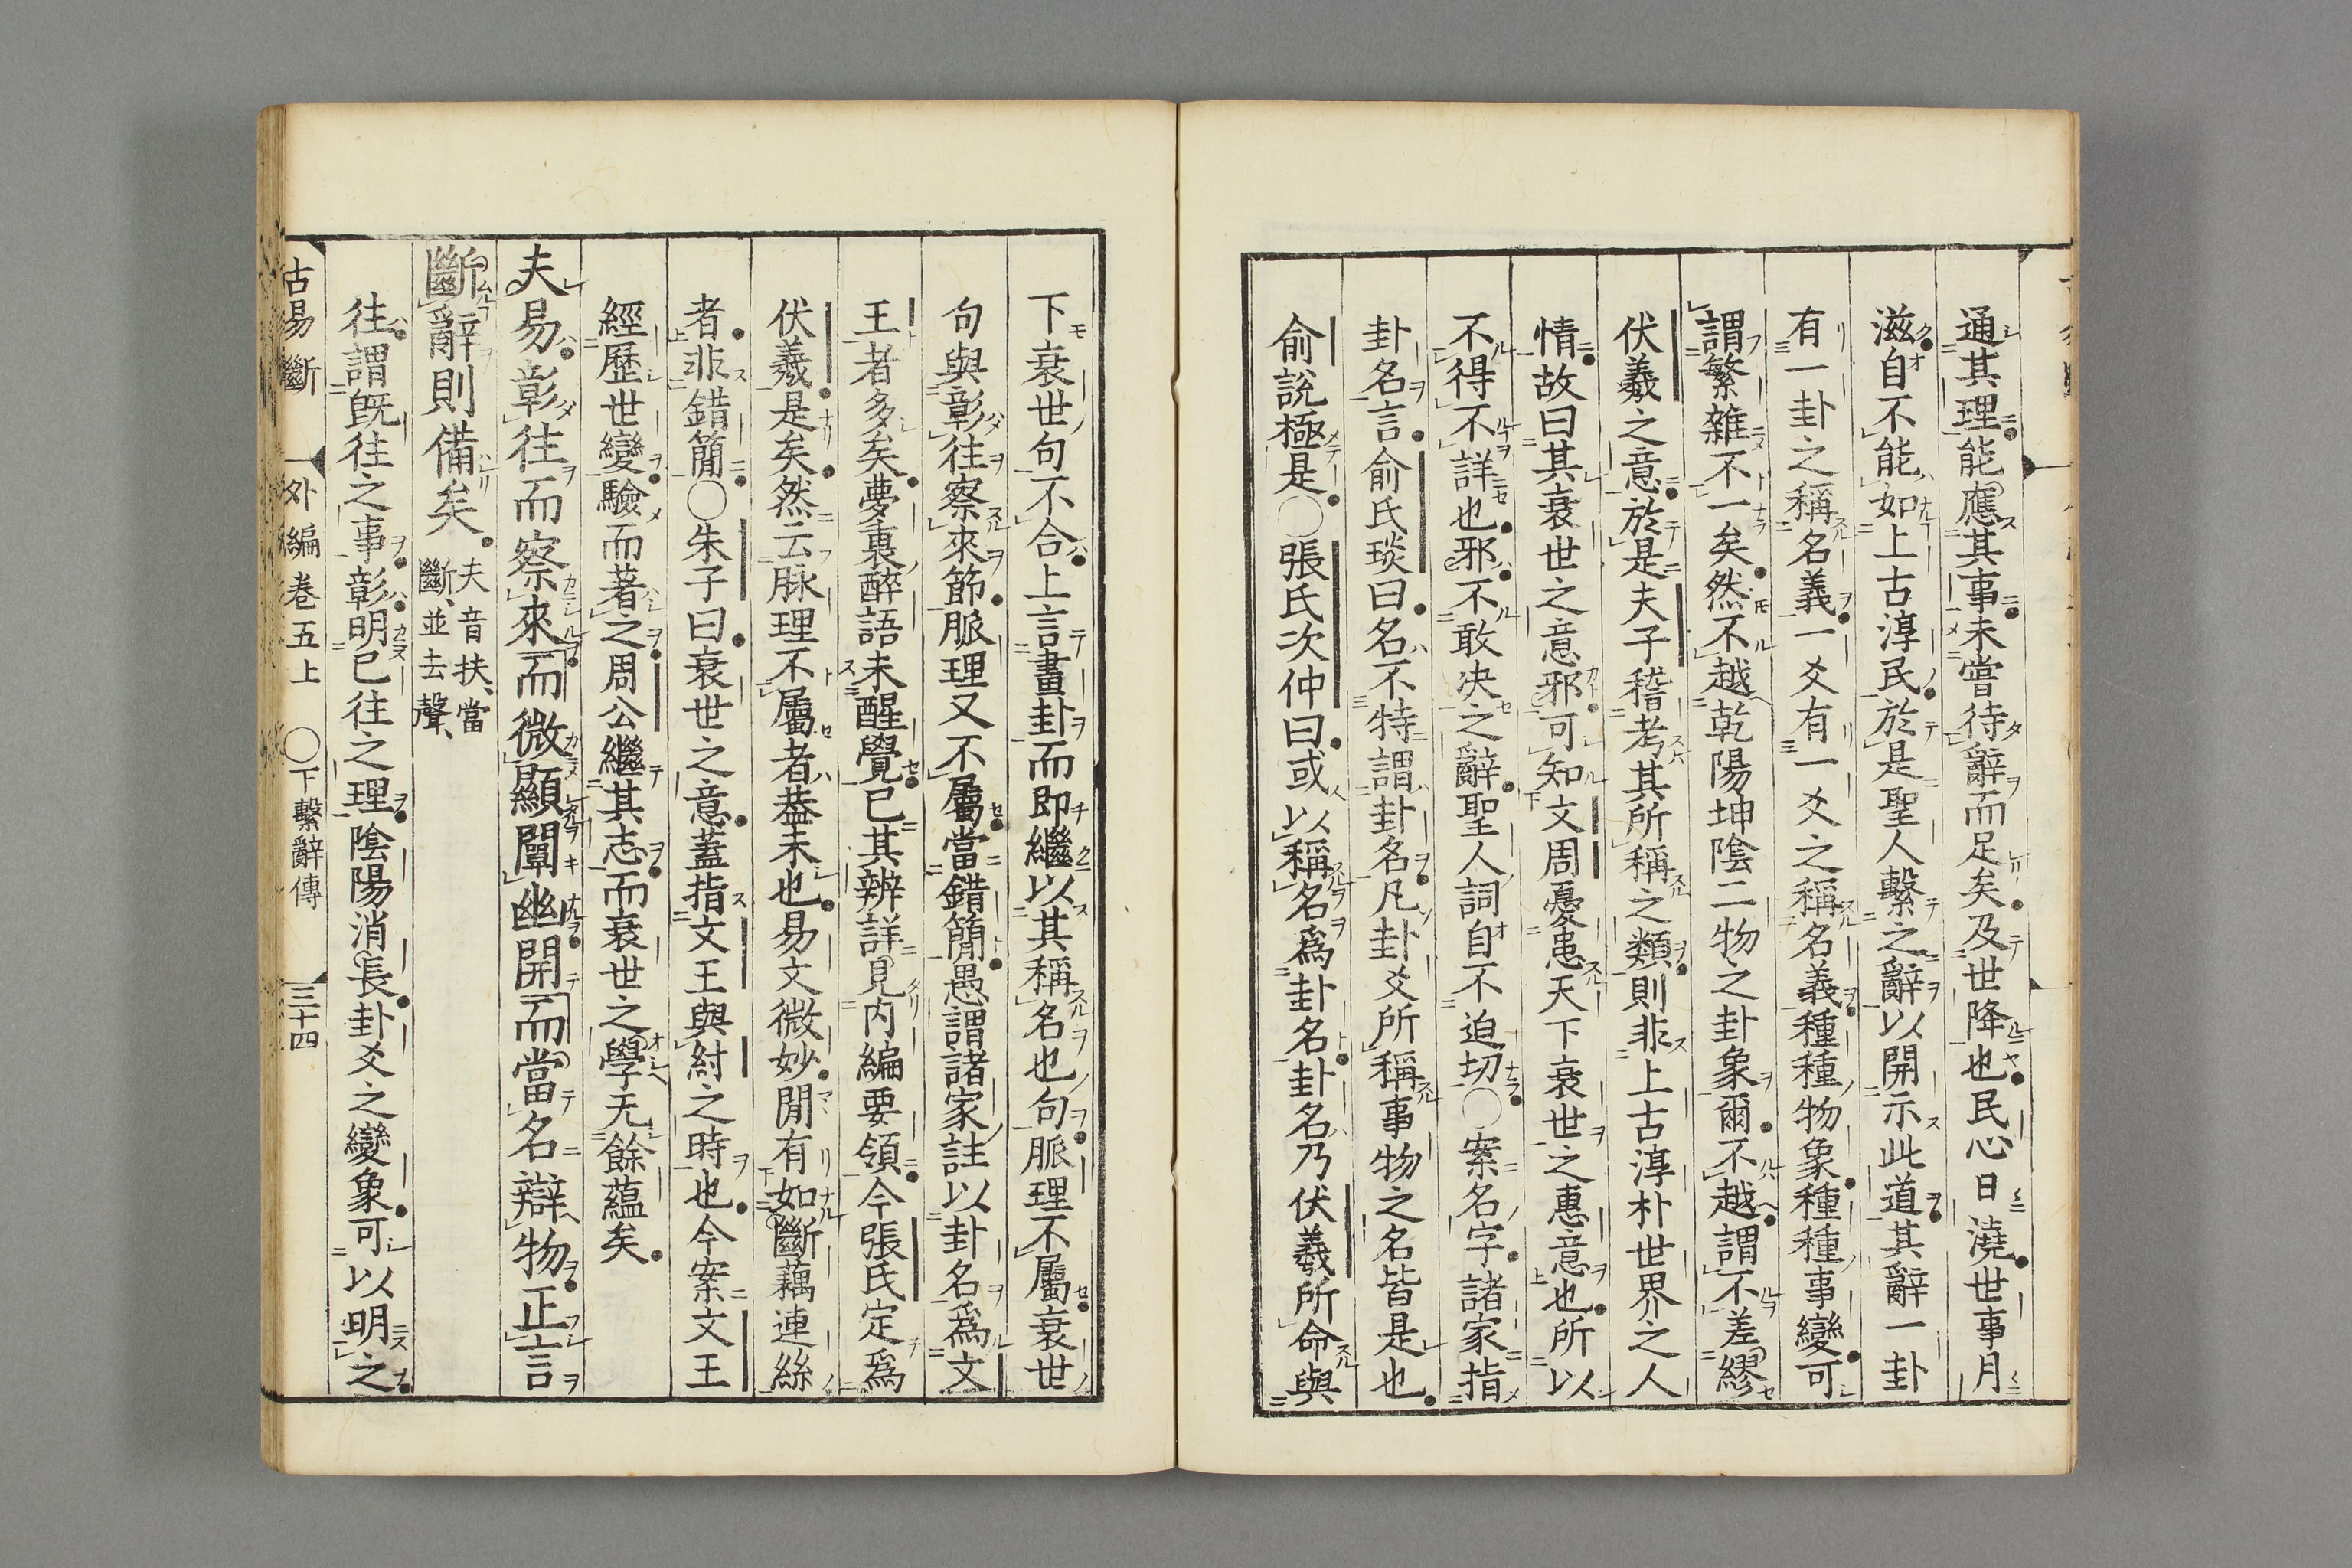 通其理能應其事未嘗待辭而足矣及世降也民心日澆世事月
滋自不能如上古淳民於是聖人繫之辭以開示此道其辭一卦
有一卦之稱名義一爻有一爻之稱名義種種物象種種事變可
謂繁雜不一矣然不越乾陽坤陰二物之卦象爾不越謂不差繆
伏羲之意於是夫子稽考其所稱之類則非上古淳朴世界之人
情故曰其衰世之意邪可知文周憂患天下衰世之惠意也所以
不得不詳也邪不敢決之辭聖人詞自不迫切○案名字諸家指
卦名言俞氏琰曰名不特謂卦名凡卦爻所稱事物之名皆是也
俞說極是○張氏次仲曰或以稱名爲卦名卦名乃伏羲所命與
下衰世句不合上言畫卦而即繼以其稱名也句脈理不屬衰世
句與彰往察來節脈理又不屬當錯簡愚謂諸家註以卦名爲文
王者多矣夢裏醉語未醒覺已其辨詳見内編要領今張氏定爲
伏羲是矣然云脉理不屬者葢未也易文微妙閒有如斷藕連絲
者非錯簡○朱子曰衰世之意蓋指文王與紂之時也今案文王
經歷世變驗而著之周公繼其志而衰世之學无餘蘊矣
夫易彰往而察來而微顯闡幽開而當名辯物正言
斷辭則備矣夫音扶、當
斷、並去聲、
往謂旣往之事彰明已往之理陰陽消長卦爻之變象可以明之
古易斷 外編卷五上 ○下繫辭傳 三十四